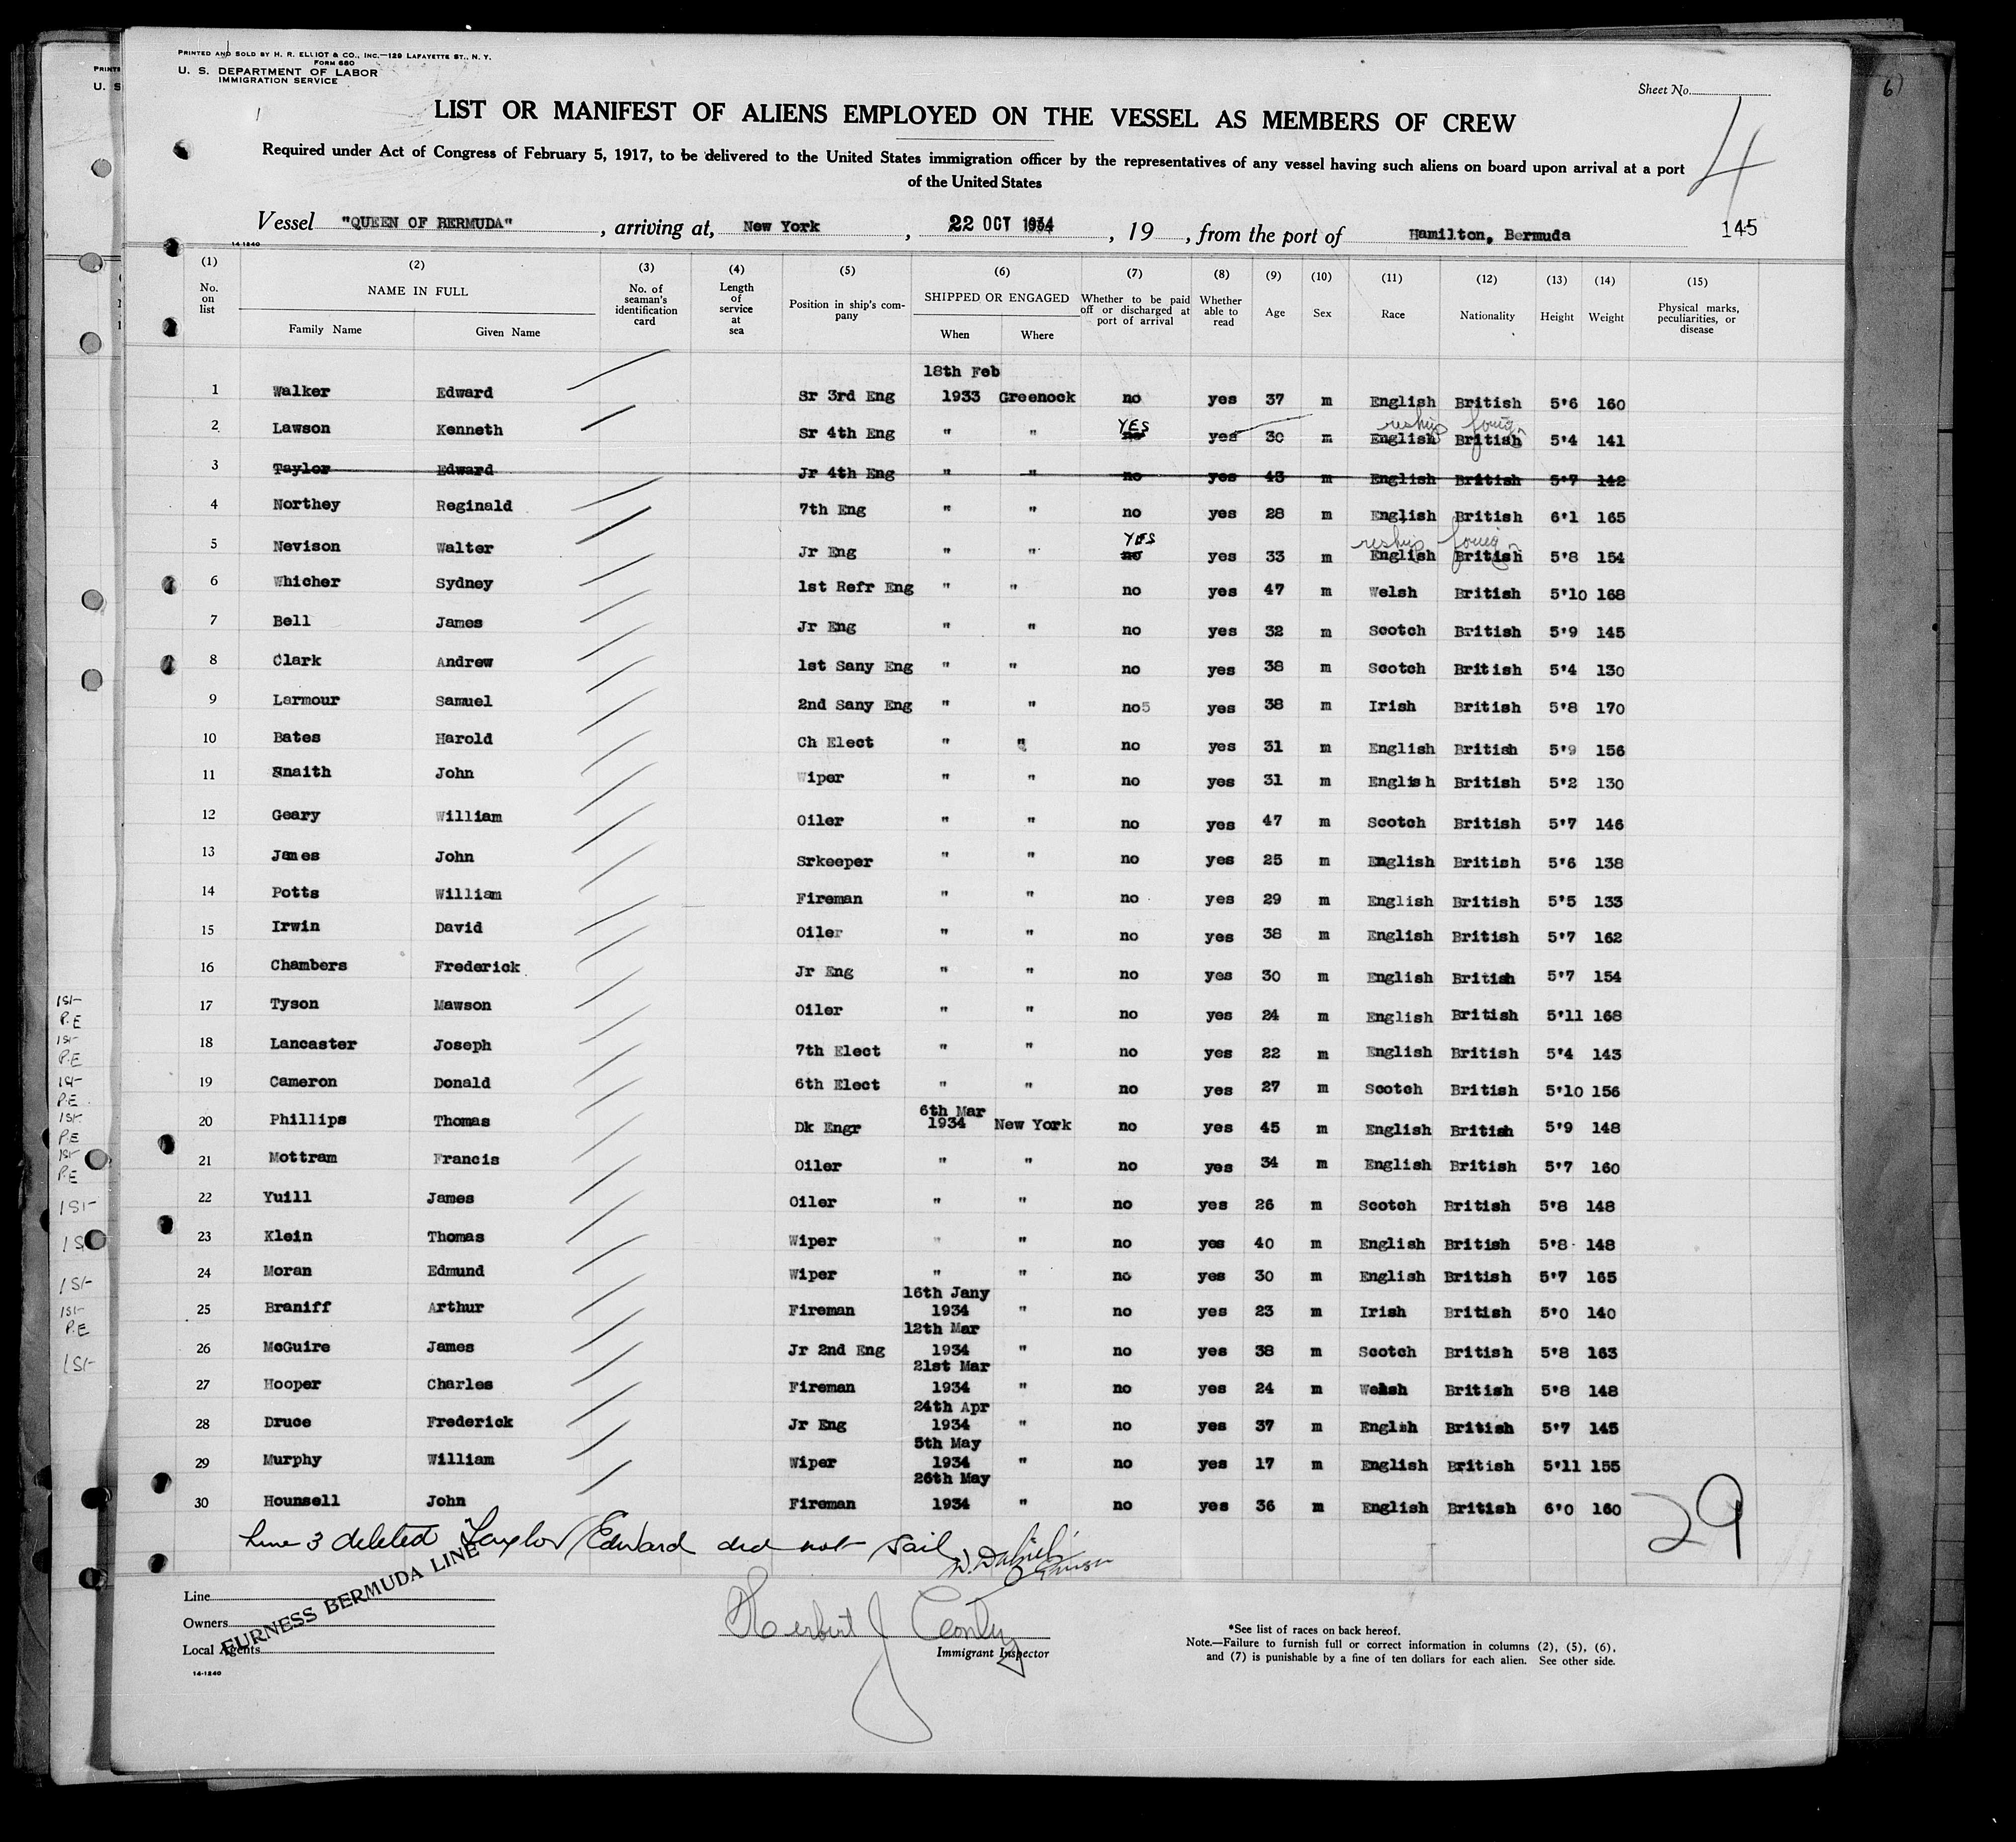 PRINTED AND SOLD BY H. R. ELLIOT & CO., INC.—129 LAFAYETTE ST., N. Y.
FORM 680
U. S. DEPARTMENT OF LABOR
IMMIGRATION SERVICE
Sheet No.
4
LIST OR MANIFEST OF ALIENS EMPLOYED ON THE VESSEL AS MEMBERS OF CREW
Required under Act of Congress of February 5, 1917, to be delivered to the United States immigration officer by the representatives of any vessel having such aliens on board upon arrival at a port
of the United States
Vessel "QUEEN OF BERMUDA", arriving at, New York, 22 OCT 1934, 19, from the port of Hamilton, Bermuda 145
14-1240
(1) (2) (3) (4) (5) (6) (7) (8) (9) (10) (11) (12) (13) (14) (15)
No. on list NAME IN FULL Family Name Given Name No. of seaman's identification card Length of service at sea Position in ship's company SHIPPED OR ENGAGED When Where Whether to be paid off or discharged at port of arrival Whether able to read Age Sex Race Nationality Height Weight Physical marks, peculiarities, or disease
18th Feb
1 Walker Edward Sr 3rd Eng 1933 Greenock no yes 37 m English British 5'6 160
YES reship foreign
2 Lawson Kenneth Sr 4th Eng " " no yes 30 m English British 5'4 141
3 Taylor Edward Jr 4th Eng " " no yes 43 m English British 5'7 142
4 Northey Reginald 7th Eng " " no yes 28 m English British 6'1 165
YES reship foreign
5 Nevison Walter Jr Eng " " no yes 33 m English British 5'8 154
6 Whicher Sydney 1st Refr Eng " " no yes 47 m Welsh British 5'10 168
7 Bell James Jr Eng " " no yes 32 m Scotch British 5'9 145
8 Clark Andrew 1st Sany Eng " " no yes 38 m Scotch British 5'4 130
9 Larmour Samuel 2nd Sany Eng " " no5 yes 38 m Irish British 5'8 170
10 Bates Harold Ch Elect " " no yes 31 m English British 5'9 156
11 Snaith John Wiper " " no yes 31 m English British 5'2 130
12 Geary William Oiler " " no yes 47 m Scotch British 5'7 146
13 James John Srkeeper " " no yes 25 m English British 5'6 138
14 Potts William Fireman " " no yes 29 m English British 5'5 133
15 Irwin David Oiler " " no yes 38 m English British 5'7 162
16 Chambers Frederick Jr Eng " " no yes 30 m English British 5'7 154
17 Tyson Mawson Oiler " " no yes 24 m English British 5'11 168
18 Lancaster Joseph 7th Elect " " no yes 22 m English British 5'4 143
19 Cameron Donald 6th Elect " " no yes 27 m Scotch British 5'10 156
6th Mar
20 Phillips Thomas Dk Engr 1934 New York no yes 45 m English British 5'9 148
21 Mottram Francis Oiler " " no yes 34 m English British 5'7 160
22 Yuill James Oiler " " no yes 26 m Scotch British 5'8 148
23 Klein Thomas Wiper " " no yes 40 m English British 5'8 148
24 Moran Edmund Wiper " " no yes 30 m English British 5'7 165
16th Jany
25 Braniff Arthur Fireman 1934 " no yes 23 m Irish British 5'0 140
12th Mar
26 McGuire James Jr 2nd Eng 1934 " no yes 38 m Scotch British 5'8 163
21st Mar
27 Hooper Charles Fireman 1934 " no yes 24 m Welsh British 5'8 148
24th Apr
28 Druce Frederick Jr Eng 1934 " no yes 37 m English British 5'7 145
5th May
29 Murphy William Wiper 1934 " no yes 17 m English British 5'11 155
26th May
30 Hounsell John Fireman 1934 " no yes 36 m English British 6'0 160
29
Line 3 deleted Taylor Edward did not sail
Line
Owners
Local Agents
FURNESS BERMUDA LINE
14-1240
Herbert J
Immigrant Inspector
*See list of races on back hereof.
Note.—Failure to furnish full or correct information in columns (2), (5), (6),
and (7) is punishable by a fine of ten dollars for each alien. See other side.